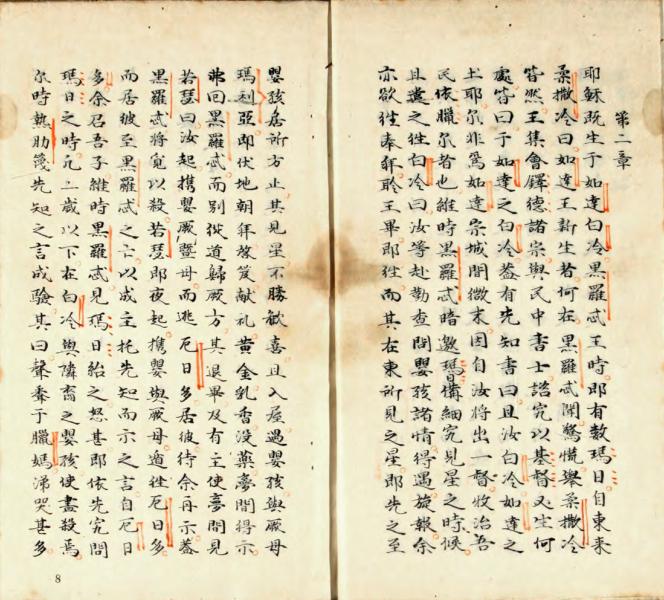 第二章
耶穌既生于如達白冷黑羅忒王時即有數瑪日自東來
柔撒冷曰如達王新生者何在黑羅忒聞驚慌舉柔撒冷
皆然王集會鐸德諸宗與民中書士諮究以基督又生何
處皆曰于如達之白冷蓋有先知書曰且汝白冷如達之
土耶尔非為如達宗城間微末因自汝將出一督牧治吾
民依臘尔者也維時黑羅忒暗邀瑪日備細究見星之時候
且遣之徃白冷曰汝等赴勤查問嬰孩諸情得遇旋報余
亦欲徃奉拜聆王畢即徃而其在東所見之星即先之至
嬰孩居所方止其見星不勝歡喜且入屋遇嬰孩與厥母
瑪利亞即伏地朝拜啟笈献礼黃金乳香没藥夢間得示
弗回黑羅忒而別從道歸厥方其退畢及有主使夢間見
若瑟曰汝起攜嬰厥暨母而逃厄日多居彼待余再示蓋
黑羅忒將寬以殺若瑟即夜起攜嬰與厥母遁徃厄日多
而居彼至黑羅忒之亡以成主托先知而示之言自厄日
多余召吾子維時黑羅忒見瑪日紿之怒甚即依先究問
瑪日之時凡二歲以下在白冷與隣裔之嬰孩使盡殺焉
尔時熱肋篾先知之言成驗其曰聲奉于臘媽涕哭甚多
8